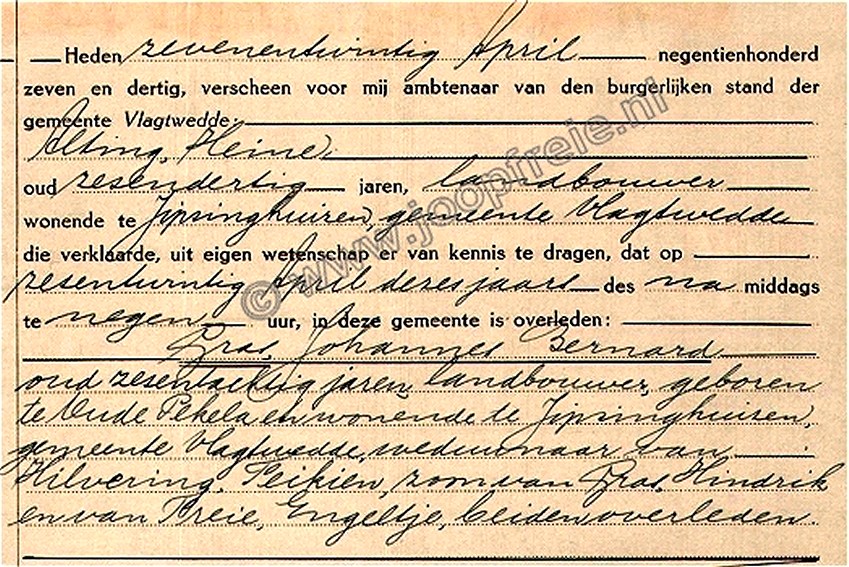 Heden zevenentwintig April negentienhonderd
zeven en dertig, verscheen voor mij ambtenaar van den burgerlijken stand der
gemeente Vlagtwedde:
Alting, Heine,
oud zesendertig jaren, landbouwer
wonende te Jipsinghuizen, gemeente Vlagtwedde
die verklaarde, uit eigen wetenschap er van kennis te dragen, dat op
zesentwintig April dezes jaars des na middags
te negen uur, in deze gemeente is overleden:
Bras, Johannes Bernard
oud zesentachtig jaren, landbouwer, geboren
te Oude Pekela en wonende te Jipsinghuizen,
gemeente Vlagtwedde, weduwnaar van
Hilvering, Feikien, zoon van Bras, Hindrik
en van Freie, Engeltje, beiden overleden.
© www.joopfreie.nl